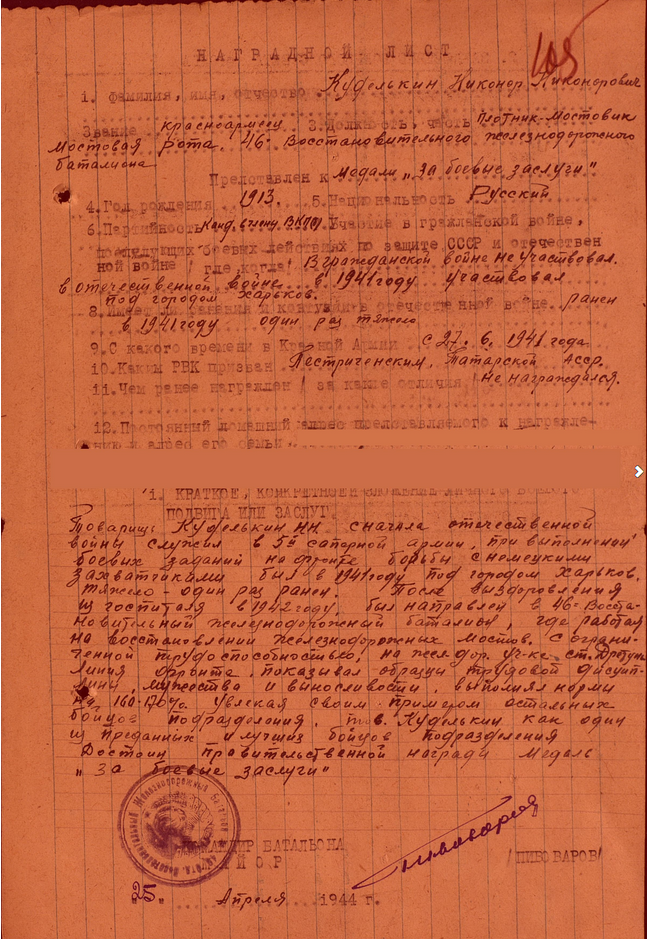 105
НАГРАДНОЙ ЛИСТ
1. Фамилия, имя, отчество Куделькин Никонор Никонорович
Звание красноармеец 3. Должность, часть Плотник-Мостовик
Мостовая Рота. 46. Восстановительного железнодорожного
баталиона
Представлен к Медали „За боевые заслуги"
4. Год рождения 1913. 5. Национальность Русский
6. Партийность Канд. в члены ВКП(б) Участие в гражданской войне,
последующих боевых действиях по защите СССР и отечествен
ной войне /где, когда/ В гражданской войне не участвовал.
в отечественной войне в 1941 году участвовал
под городом Харьков.
8. Имеет ли ранения и контузии в отечественной войне ранен
в 1941 году один раз тяжело
9. С какого времени в Красной Армии с 27. 6. 1941 года
10. Каким РВК призван Пестриченским, Татарской Асср.
11. Чем ранее награжден /за какие отличия/ Не награждался.
12. Постоянный домашний адрес представляемого к награжде-
нию и адрес его семьи.
1. КРАТКОЕ, КОНКРЕТНОЕ ИЗЛОЖЕНИЕ ЛИЧНОГО БОЕВОГО
ПОДВИГА ИЛИ ЗАСЛУГ.
Товарищ Куделькин НН сначала отечественной
войны служил в 5й саперной армии, при выполнений
боевых заданий на фронте борьбы с немецкими
Захватчиками был в 1941 году под городом Харьков.
тяжело - один раз ранен. После выздоровления
из госпиталя в 1942 году, был направлен в 46е Восста-
новительный железнодорожний баталион, где работая
на восстановлении железнодорожных мостов. С ограни-
ченной трудоспособностью, на желдор. уч-ке ст. Дретунь
Линия фронта, показывал образцы трудовой дисцип-
лины, мужества и выносливости, выполнял нормы
на 160-170%. Увлекая своим примером остальных
бойцов подразделения, тов. Куделькин как один
из преданных и лучших бойцов подразделения
Достоин правительственной награди Медаль
„За боевые заслуги"
КОМАНДИР БАТАЛЬОНА
МАЙОР /ПИВОВАРОВ/
„25" Апреля 1944 г.